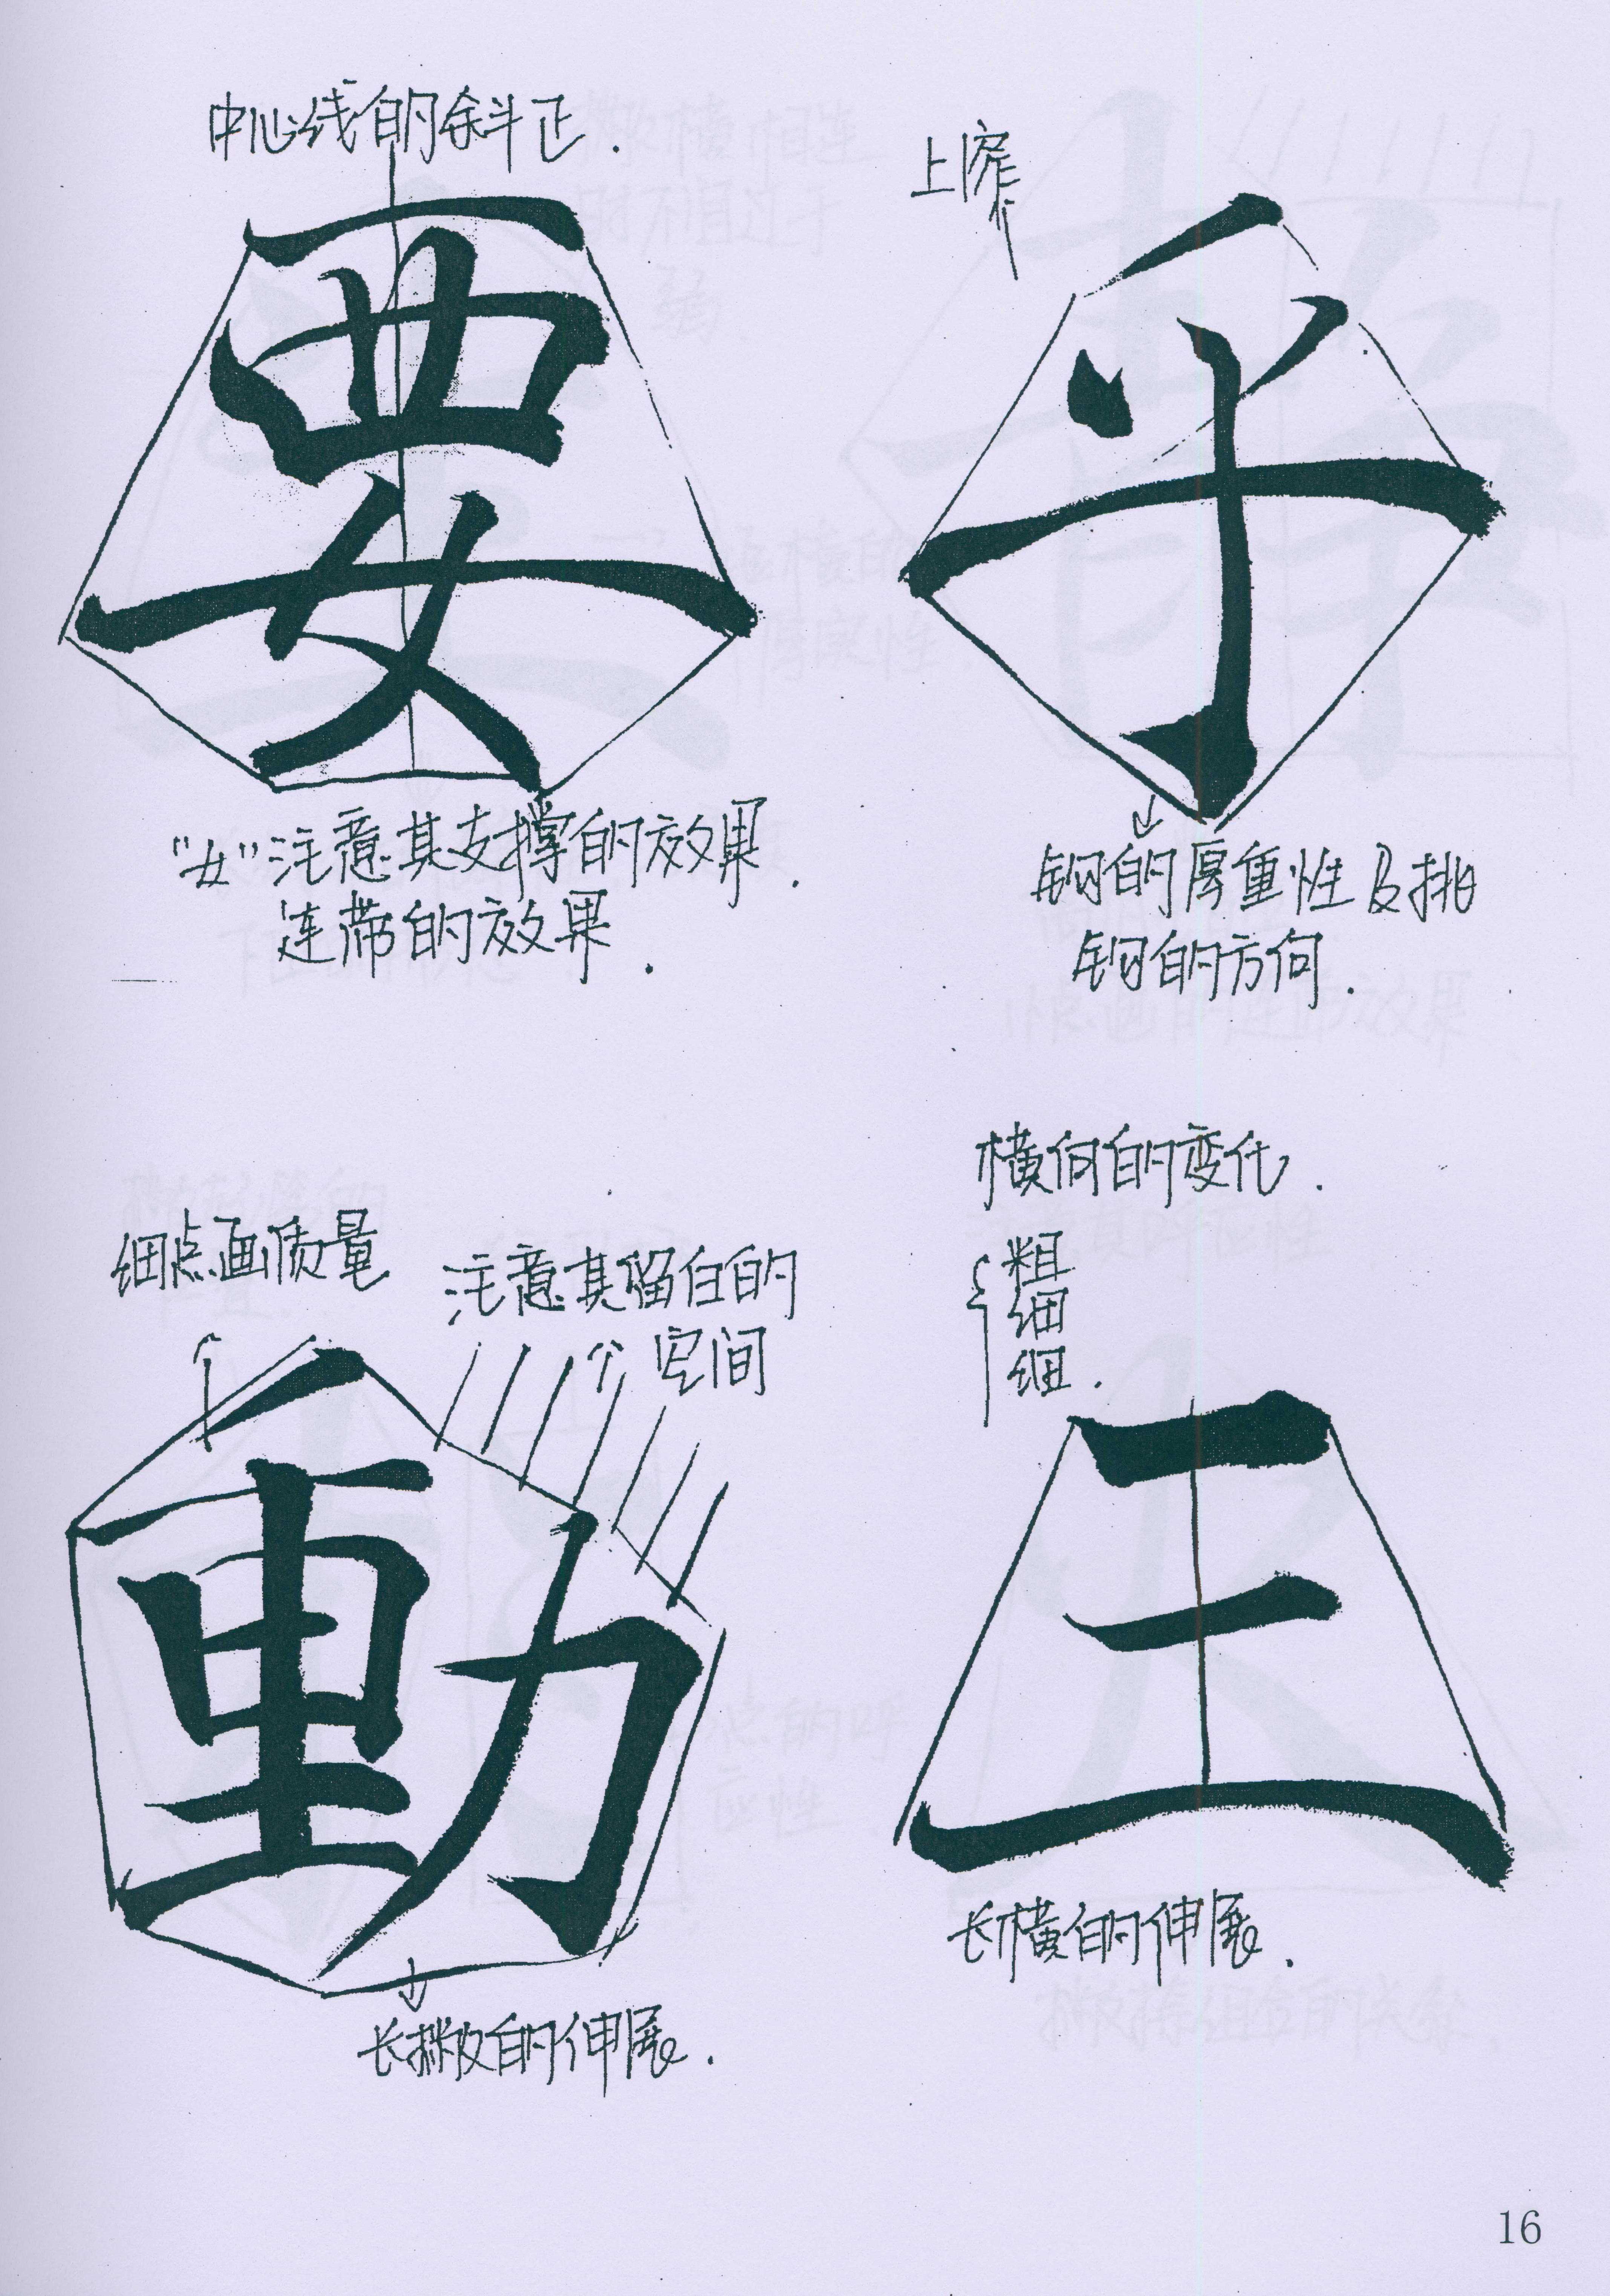 中心线的斜正.
要
"女"注意其支撑的效果.
连带的效果.
上窄
乎
钩的厚重性及挑
钩的方向.
细点画质量
注意其留白的
空间
動
长撇的伸展.
横向的变化.
粗
细
组.
三
长横的伸展.
16